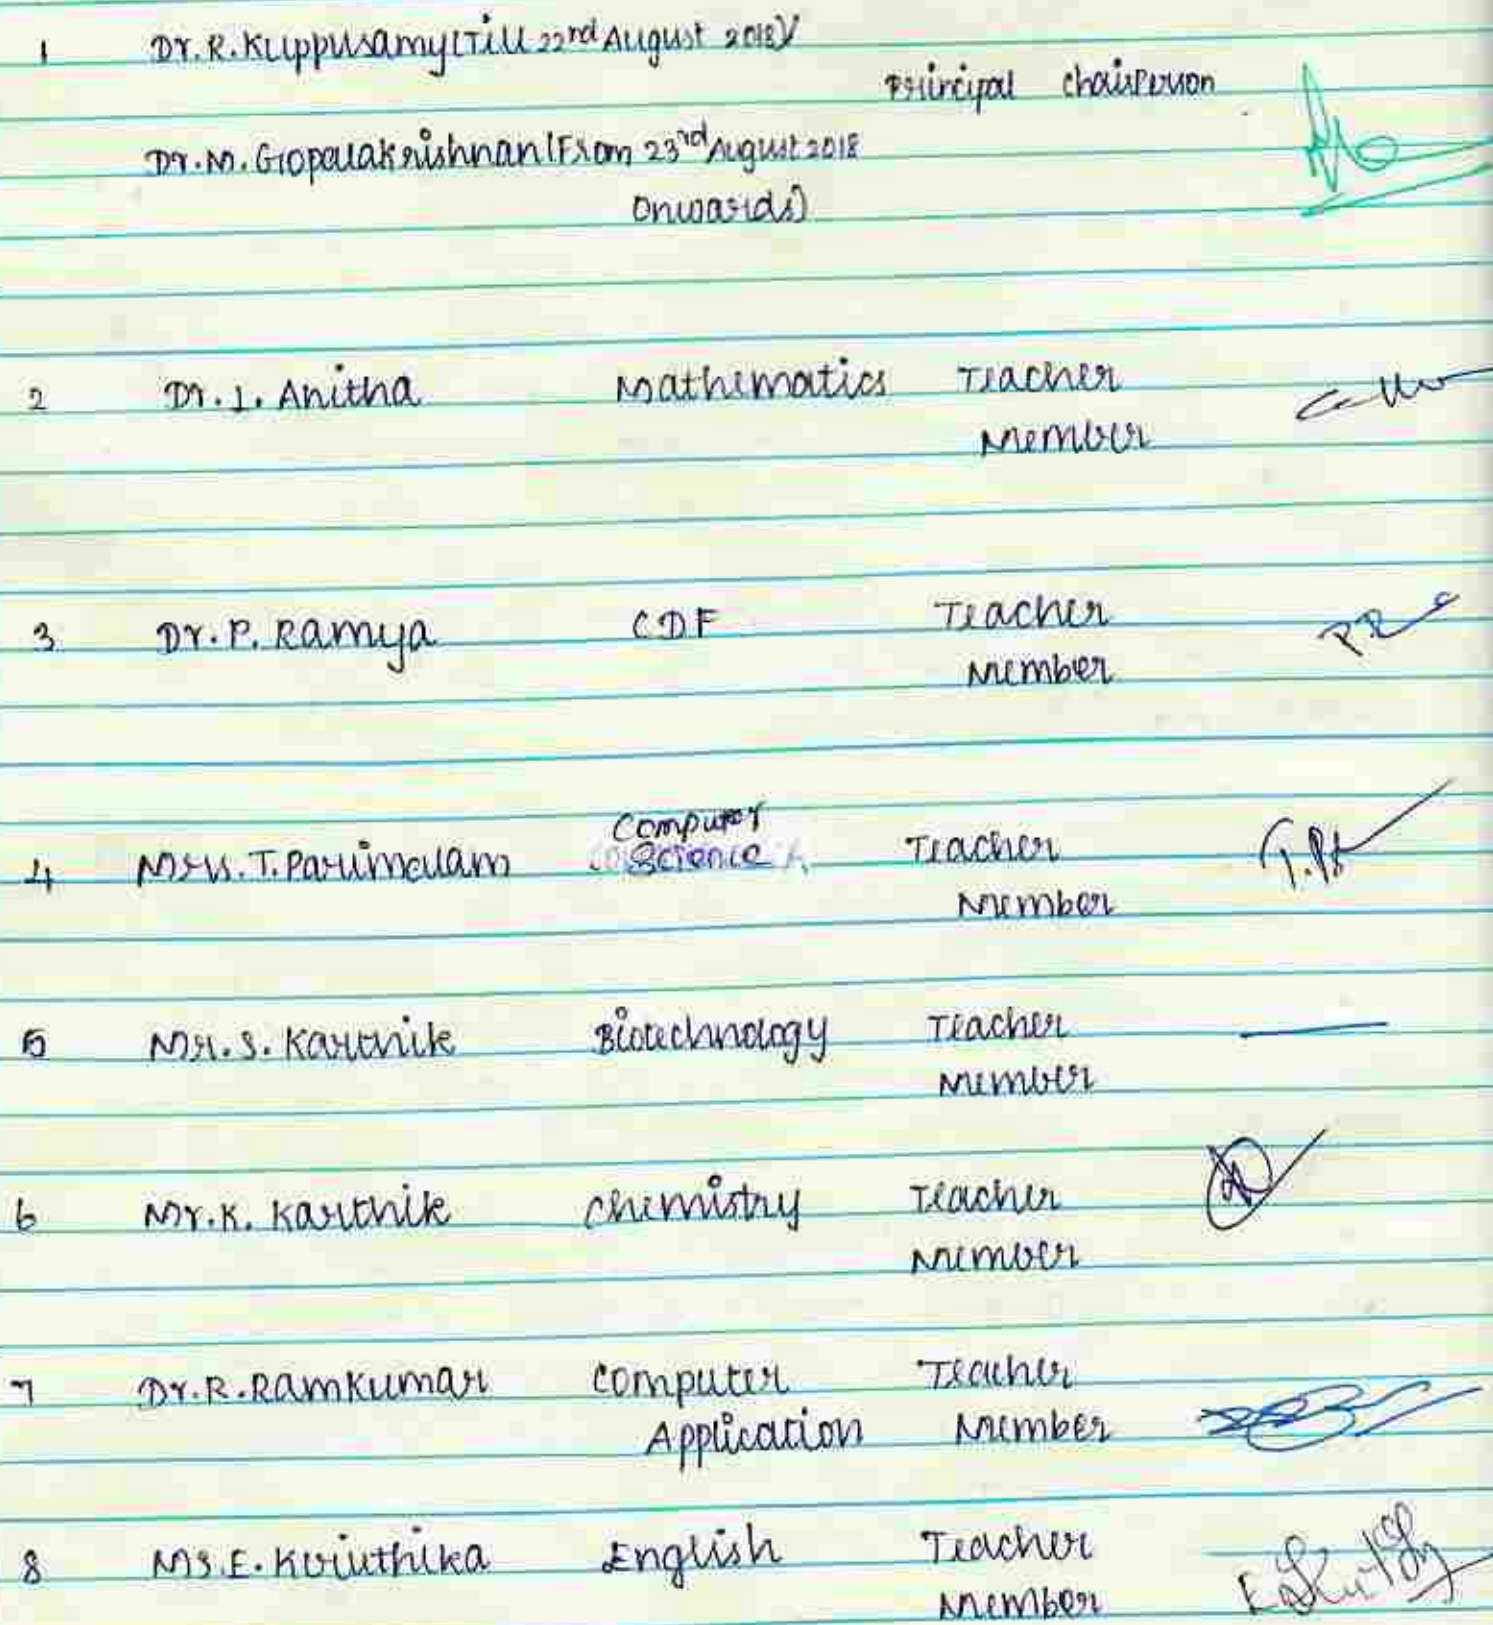 1 Dr. R. Kuppusamy (Till 22nd August 2018)/
Principal Chairperson
Dr. M. Gopalakrishnan (From 23rd August 2018
Onwards)
2 Dr. J. Anitha Mathematics Teacher
Member
3 Dr. P. Ramya CDF Teacher
Member
Computer
4 Mrs. T. Parimalam Science Teacher
Member
5 Mr. S. Karthik Biotechnology Teacher
Member
6 Mr. K. Karthik Chemistry Teacher
Member
7 Dr. R. Ramkumar Computer Teacher
Application Member
8 Ms. E. Kriuthika English Teacher
Member